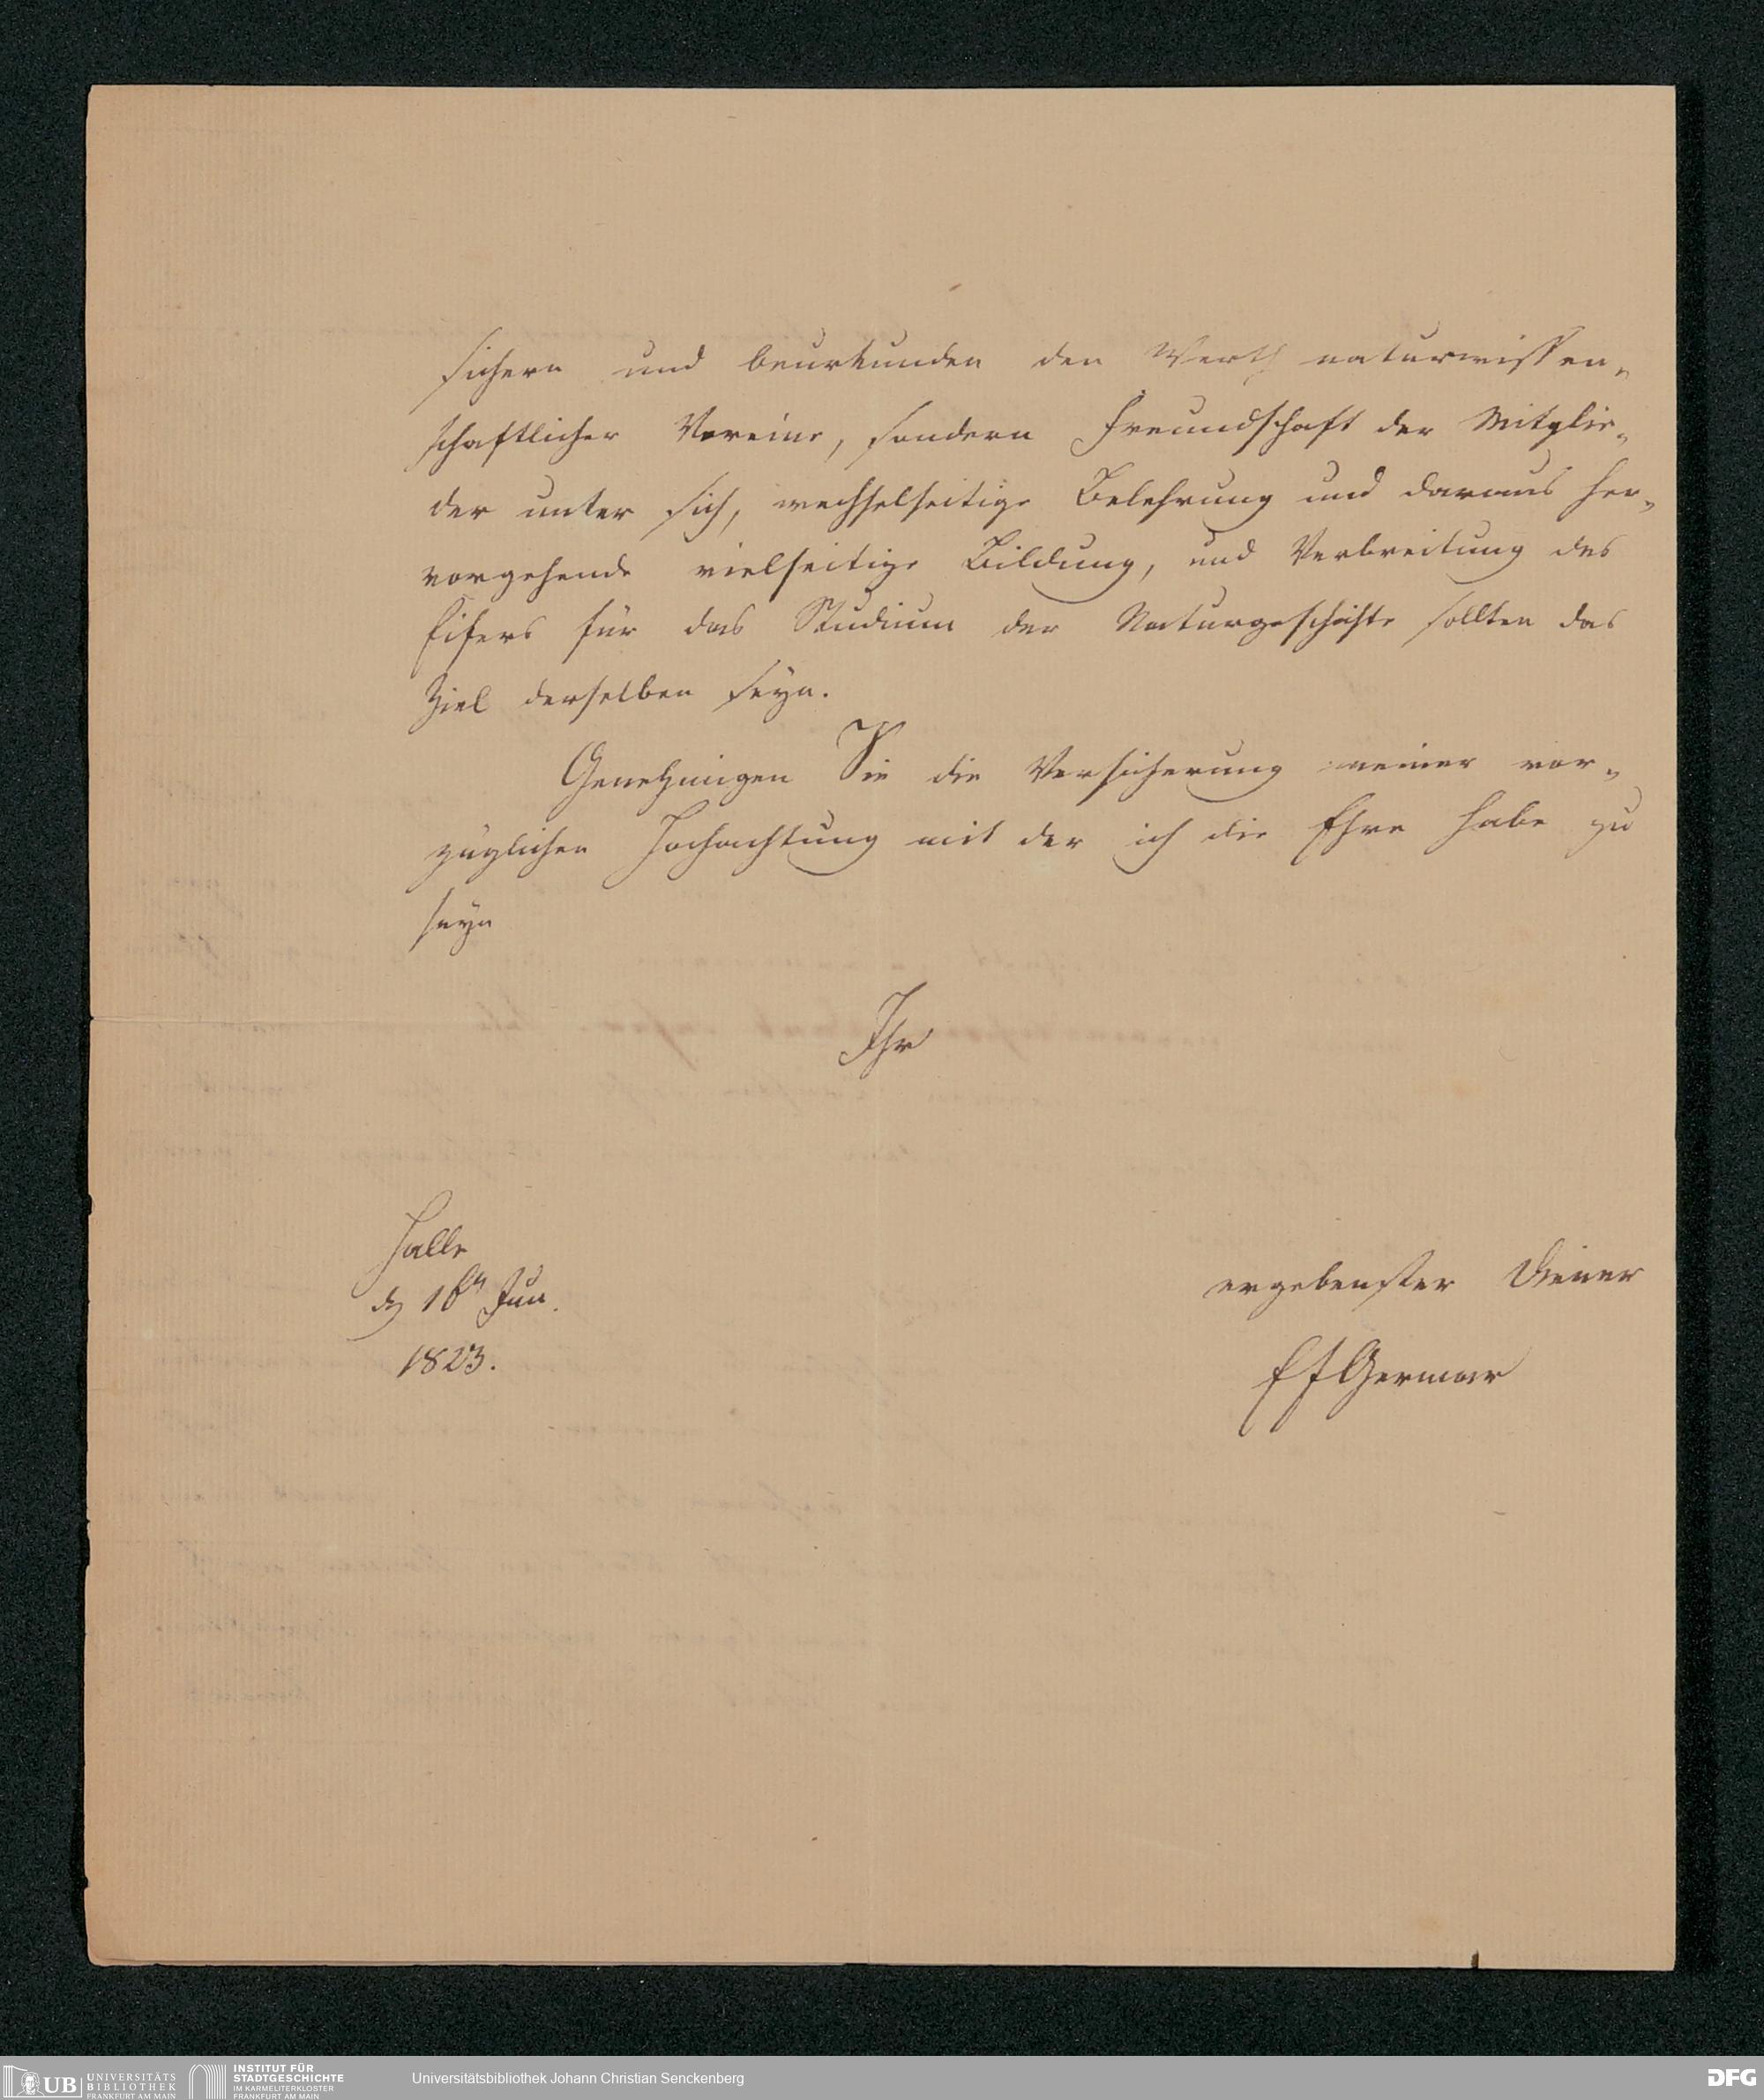 sichern und beurkunden den Werth naturwissen-
schaftlicher Vereine, sondern Freundschaft der Mitglie-
der unter sich, wechselseitige Belehrung und daraus her-
vorgehende vielseitige Bildung, und Verbreitung des
Eifers für das Studium der Naturgeschichte sollten das
Ziel derselben seyn.
Genehmigen Sie die Versicherung meiner vor-
züglichen Hochachtung mit der ich die Ehre habe zu
seyn
Ihr
Halle
d 16n Jun.
1823.
ergebenster Diener
EFGermar
UB UNIVERSITÄTS
BIBLIOTHEK
FRANKFURT AM MAIN
INSTITUT FÜR
STADTGESCHICHTE
IM KARMELITERKLOSTER
FRANKFURT AM MAIN
Universitätsbibliothek Johann Christian Senckenberg
DFG